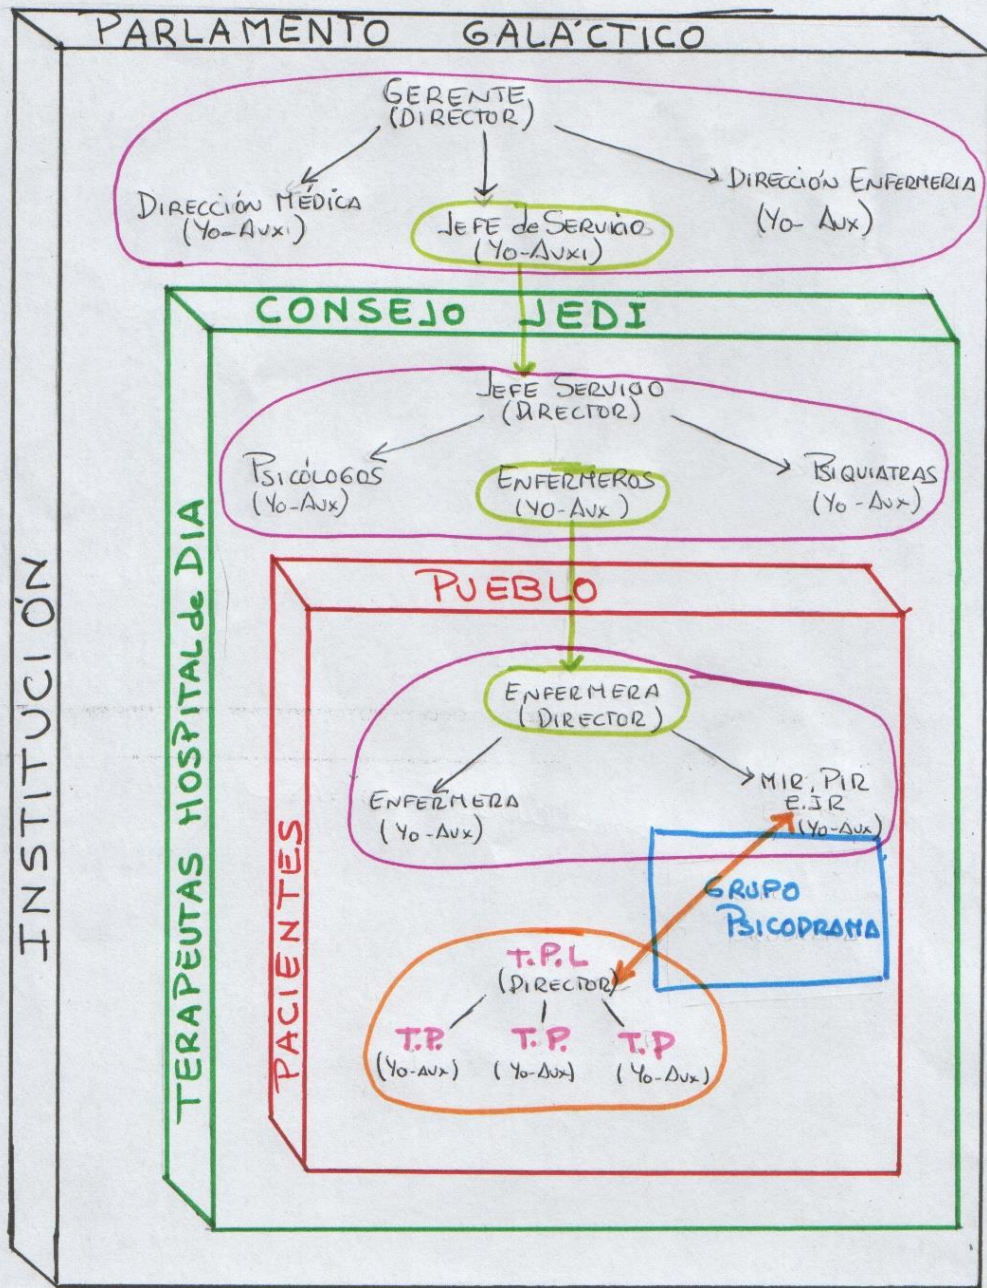 PARLAMENTO GALÁCTICO
INSTITUCIÓN
GERENTE
(DIRECTOR)
DIRECCIÓN MÉDICA
(YO-AUXI)
JEFE de SERVICIO
(YO-AUXI)
DIRECCIÓN ENFERMERIA
(YO-AUX)
CONSEJO JEDI
TERAPEUTAS HOSPITAL de DIA
JEFE SERVICIO
(DIRECTOR)
PSICÓLOGOS
(YO-AUX)
ENFERMEROS
(YO-AUX)
PSIQUIATRAS
(YO-AUX)
PUEBLO
PACIENTES
ENFERMERA
(DIRECTOR)
ENFERMERA
(YO-AUX)
MIR, PIR
E.IR
(YO-AUX)
GRUPO
PSICODRAMA
T.P.L
(DIRECTOR)
T.P. T.P. T.P
(YO-AUX) (YO-AUX) (YO-AUX)